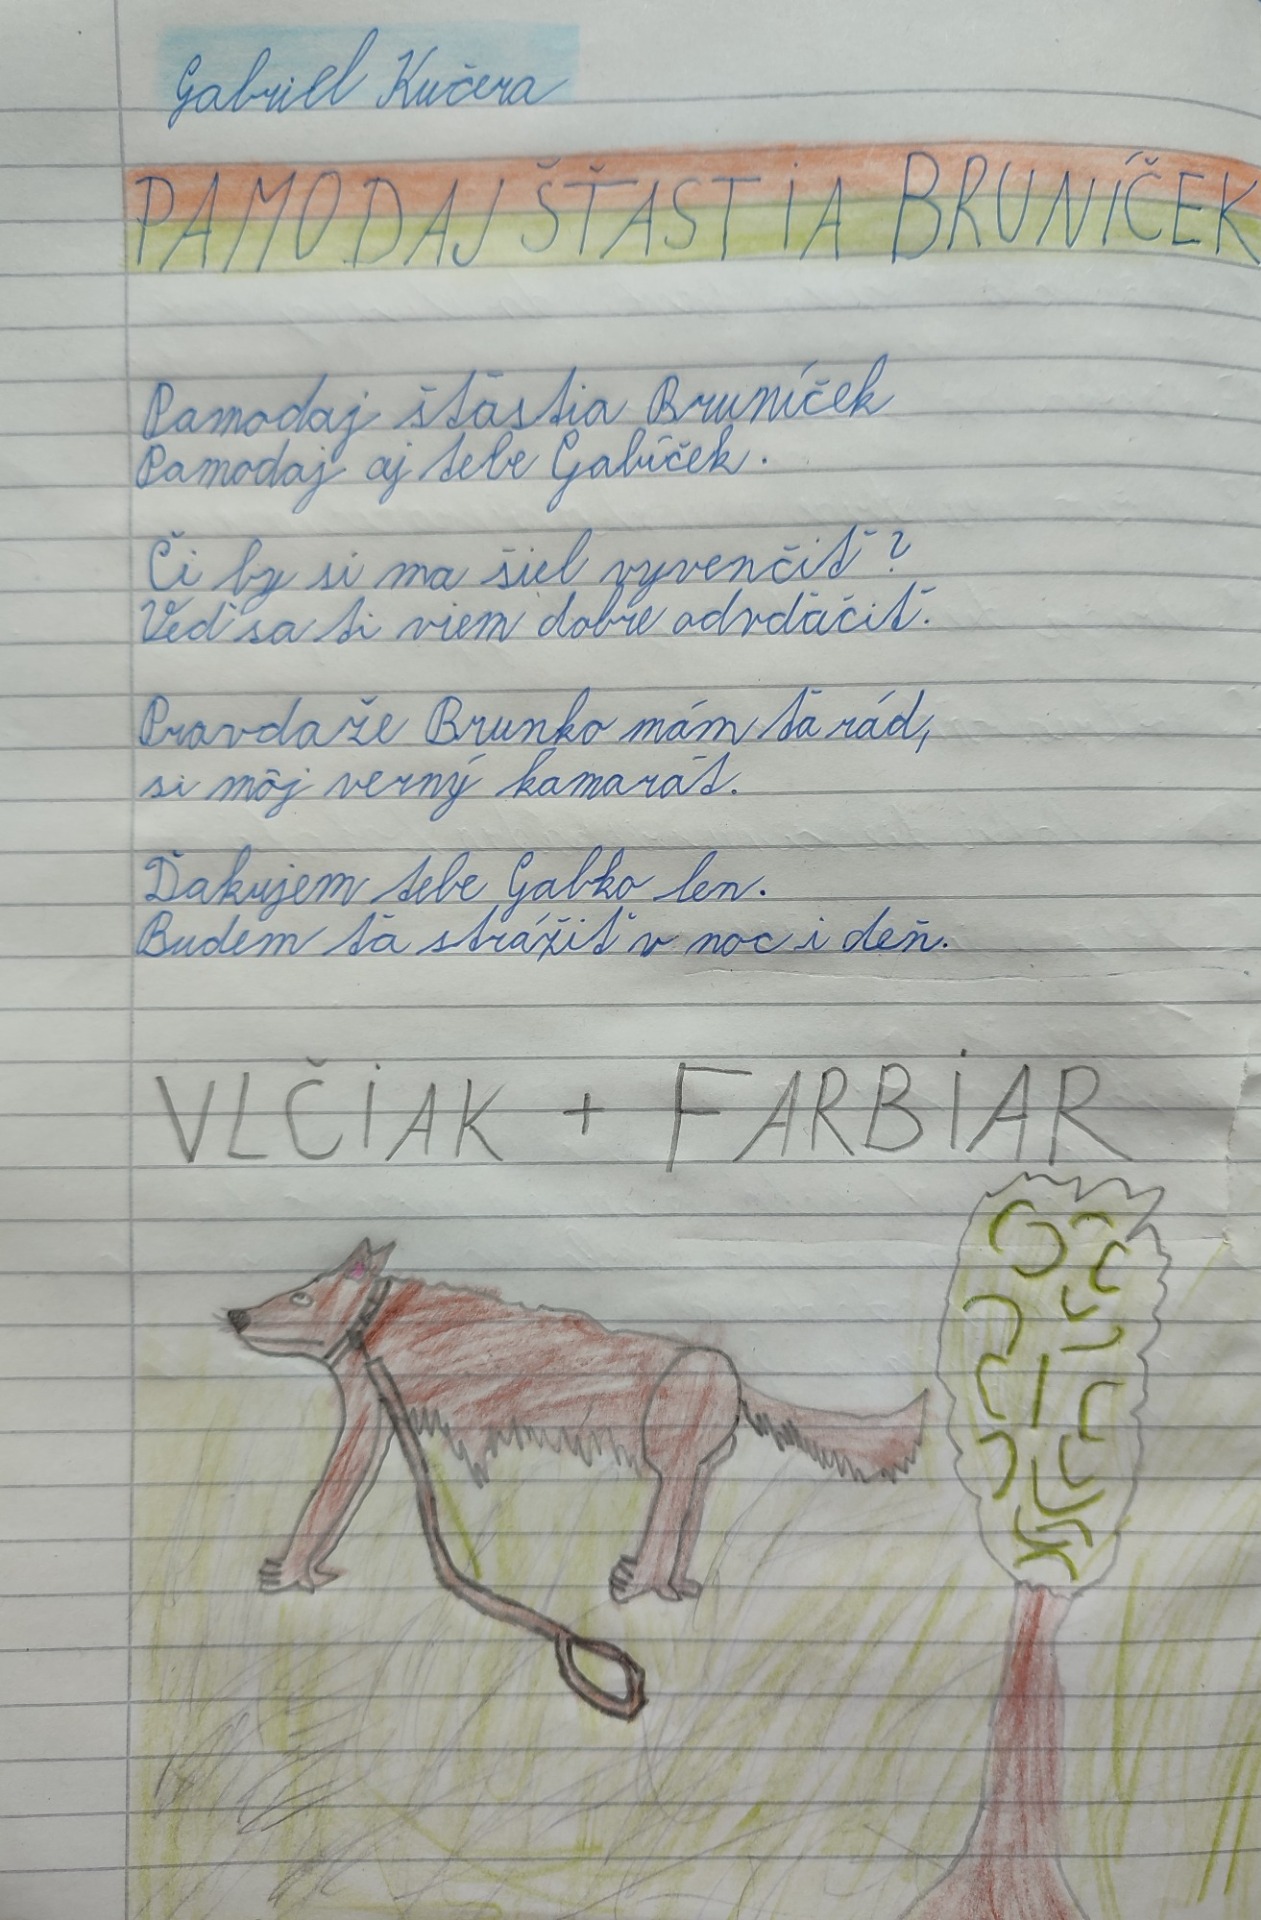 Gabriel Kučera
PAMODAJ ŠŤASTIA BRUNÍČEK
Pamodaj šťastia Bruníček
Pamodaj aj tebe Gabíček.
Či by si ma šiel vyvenčiť?
Veď sa ti viem dobre odvďačiť.
Pravdaže Brunko mám ťa rád,
si môj verný kamarát.
Ďakujem tebe Gabko len.
Budem ťa strážiť v noc i deň.
VLČIAK + FARBIAR